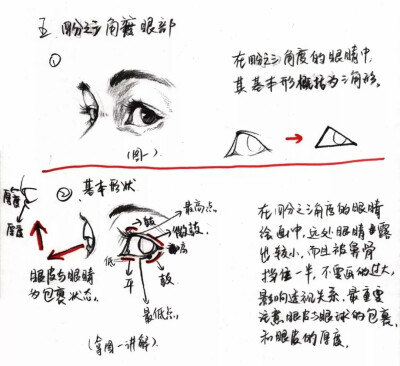 五、四分之三角度眼部
①
在四分之三角度的眼睛中,
其基本形概括为三角形。
(图一)
② 基本形状
厚度
厚度
眼皮与眼睛
为包裹状态。
鼓
最高点
微鼓
高
低
平
鼓
最低点
(拿图一讲解)
在四分之三角度的眼睛
绘画中,远处眼睛露
出较小,而且被鼻骨
挡住一半,不要画的过大,
影响透视关系,最重要
注意眼皮与眼球的包裹,
和眼皮的厚度。